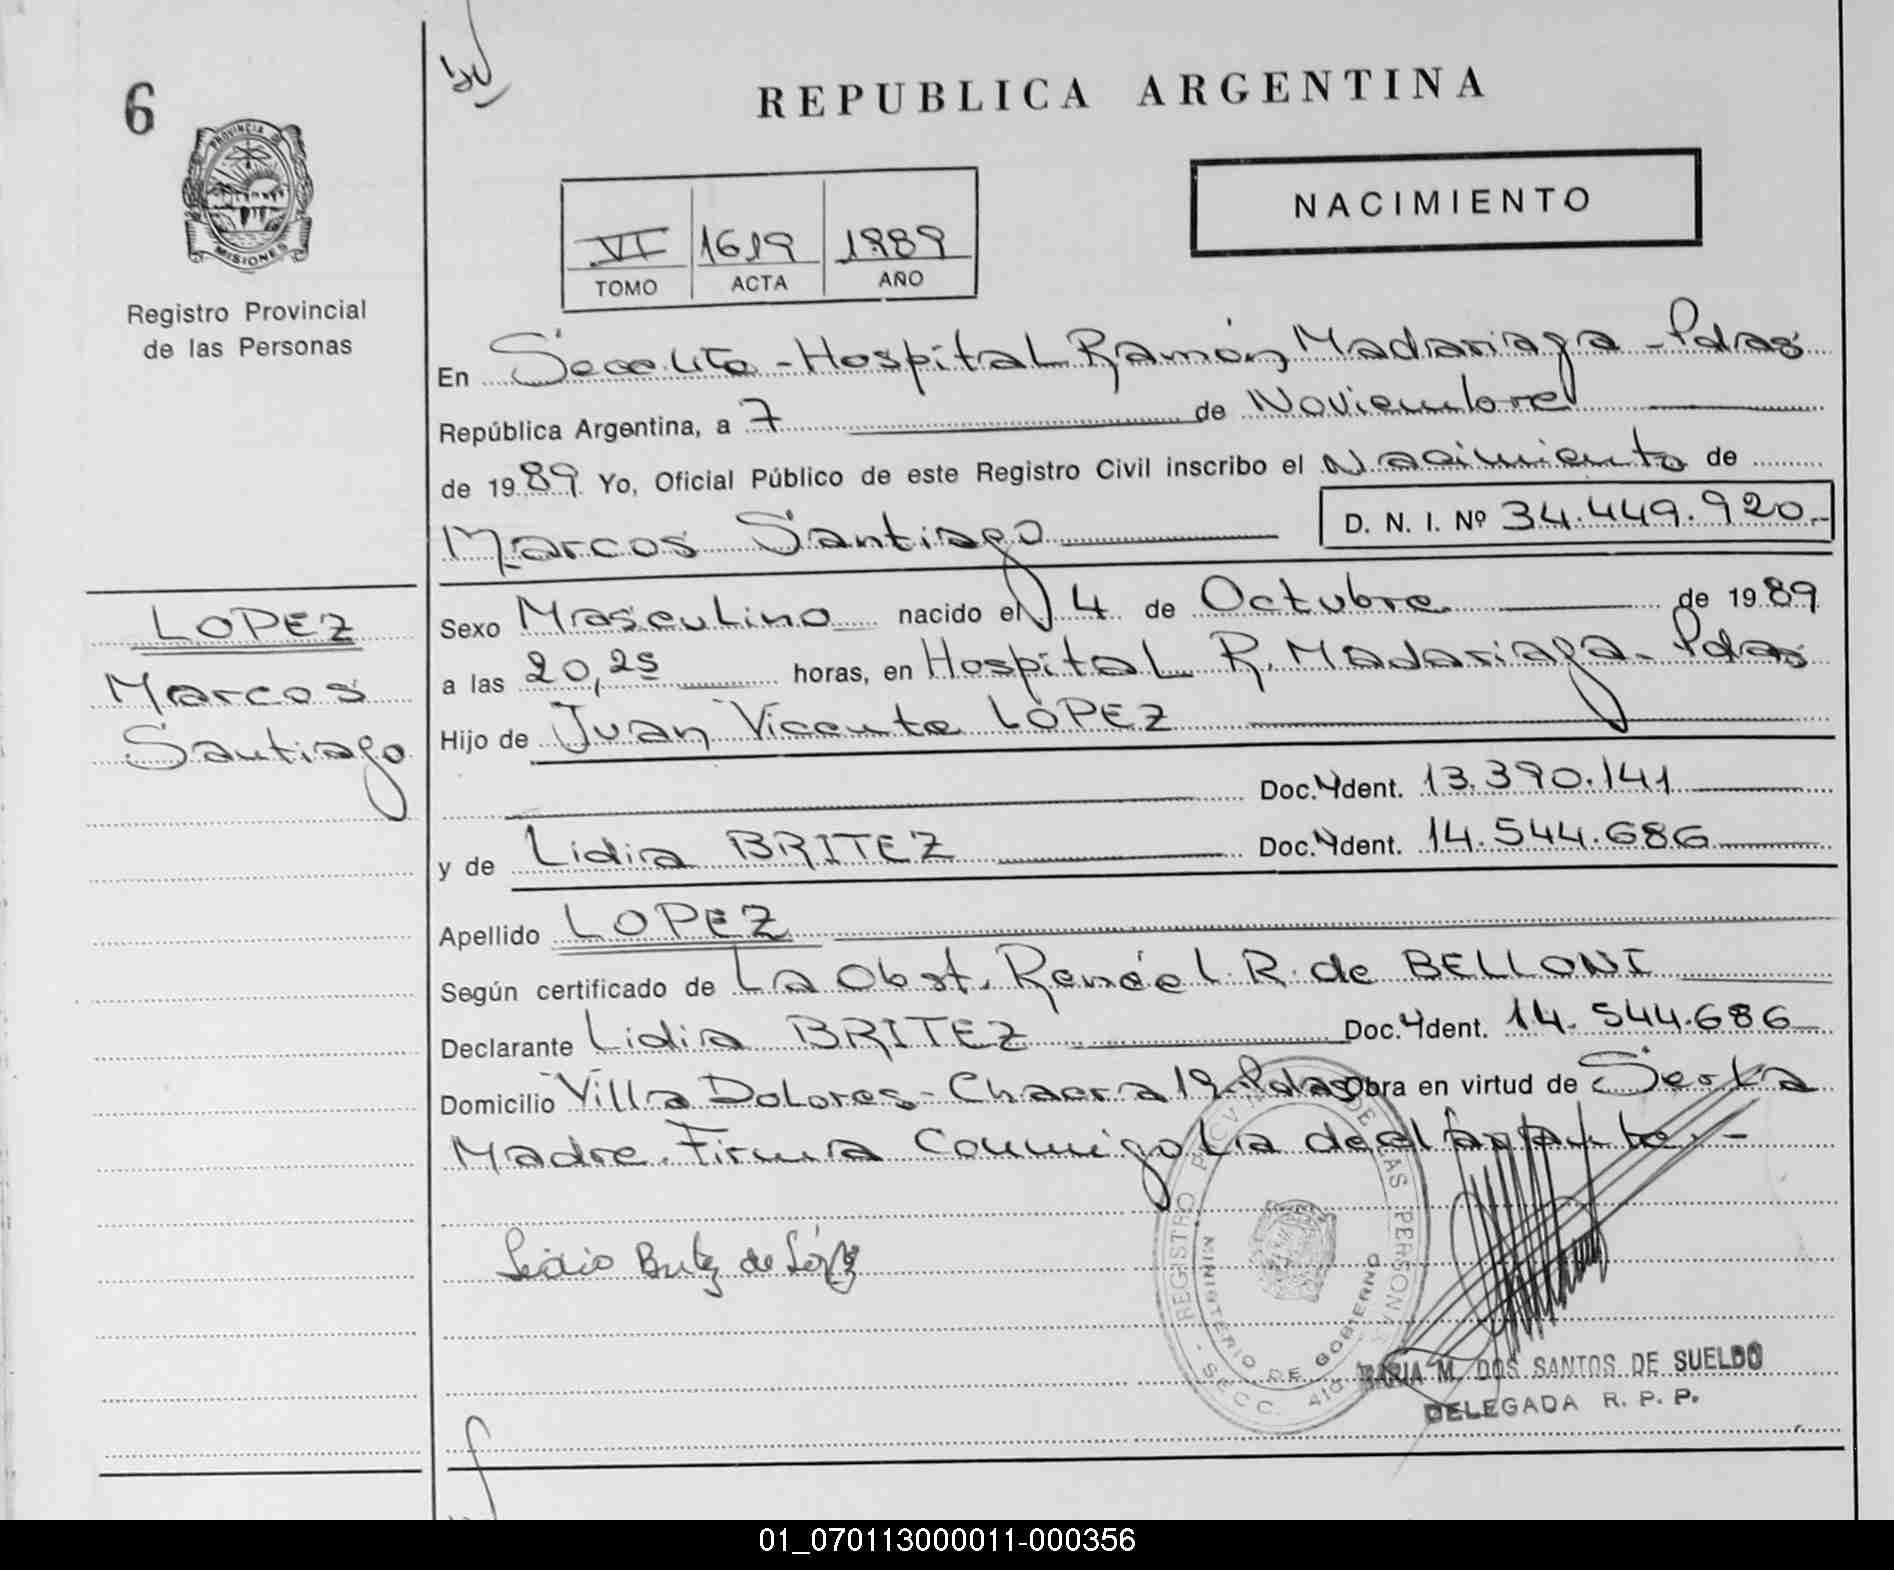 6
PROVINCIA DE
MISIONES
Registro Provincial
de las Personas
REPUBLICA ARGENTINA
NACIMIENTO
VI 1619 1989
TOMO ACTA AÑO
En Secc 4ta - Hospital Ramón Madariaga - Pdas
República Argentina, a 7 de Noviembre
de 1989 Yo, Oficial Público de este Registro Civil inscribo el Nacimiento de
Marcos Santiago D. N. I. Nº 34.449.920.-
LOPEZ
Marcos
Santiago
Sexo Masculino nacido el 4 de Octubre de 1989
a las 20,25 horas, en Hospital R. Madariaga - Pdas
Hijo de Juan Vicente LOPEZ
Doc. Ydent. 13.390.141
y de Lidia BRITEZ Doc. Ydent. 14.544.686
Apellido LOPEZ
Según certificado de La Obst. Renée L. R. de BELLONI
Declarante Lidia BRITEZ Doc. Ydent. 14.544.686
Domicilio Villa Dolores - Chacra 19 - Pdas Obra en virtud de Ser la
Madre. Firma Conmigo la declarante. -
Lidia Britez de López
REGISTRO PROVINCIAL DE LAS PERSONAS
MINISTERIO DE GOBIERNO
SECC. 4ta
MARIA M. DOS SANTOS DE SUELDO
DELEGADA R. P. P.
01_070113000011-000356